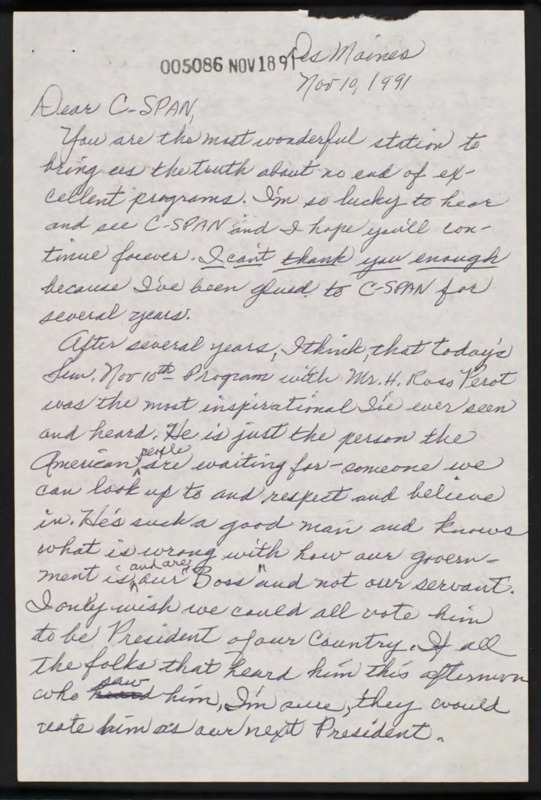 005086 NOV 18 91
Des Moines
Nov 10, 1991
Dear C-SPAN,
You are the most wonderful station to
bring us the truth about no end of ex-
cellent programs. I'm so lucky to hear
and see C-SPAN and I hope you'll con-
tinue forever. I can't thank you enough
because I've been glued to C-SPAN for
several years.
After several years, I think, that today's
Sun. Nov 10th Program with Mr. H. Ross Perot
was the most inspirational I've ever seen
and heard. He is just the person the
American people are waiting for - someone we
can look up to and respect and believe
in. He's such a good man and knows
what is wrong with how our govern-
ment is and are our "Boss" and not our servant.
I only wish we could all vote him
to be President of our Country. If all
the folks that heard him this afternoon
who heard saw him, I'm sure, they would
vote him as our next President.